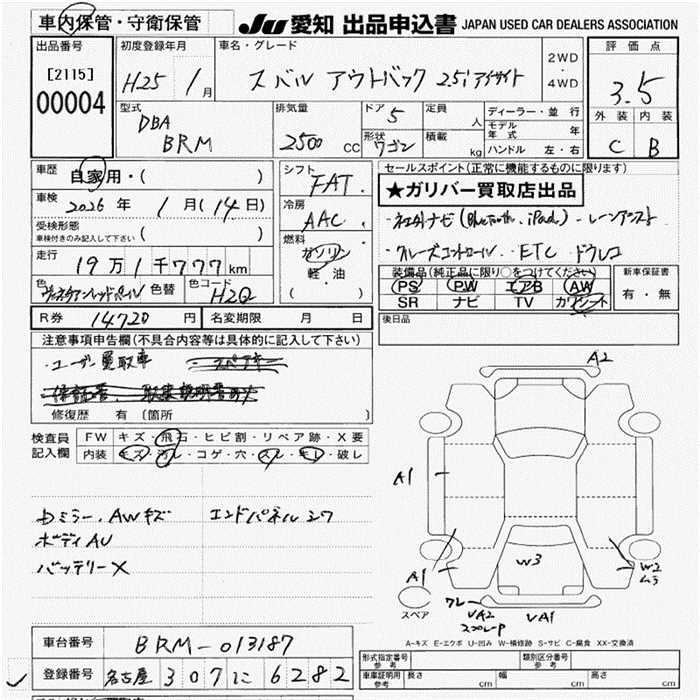 車内保管・守衛保管
JU 愛知 出品申込書 JAPAN USED CAR DEALERS ASSOCIATION
出品番号
[2115]
00004
初度登録年月
H25 / 1月
車名・グレード
スバル アウトバック 2.5i アイサイト
2WD
・
4WD
評価点
3.5
外装 内装
C B
型式
DBA
BRM
排気量
2500 CC
ドア 5
形状
ワゴン
定員 人
積載 kg
ディーラー・並行
モデル年式 年
ハンドル 左・右
車歴
自家用・( )
車検
2026 年 1月(14日)
受検形態
車検付きのみ記入して下さい ( )
走行
19万1千777km
色
色替
色コード
H2Q
シフト
FAT
冷房
AAC
燃料
ガソリン
軽・油
( )
セールスポイント(正常に機能するものに限ります)
★ガリバー買取店出品
・社外ナビ(Bluetooth, iPod)
・クルーズコントロール ・ETC ・ドラレコ
装備品(純正品に限り○をつけてください)
PS PW エアB AW
SR ナビ TV カワシート
新車保証書
有・無
R券 14720 円
名変期限 月 日
後日品
注意事項申告欄(不具合内容等は具体的に記入して下さい)
・ユーザー買取車
修復歴 有 〔箇所 〕
検査員
記入欄
FW キズ・飛石・ヒビ割・リペア跡・X要
内装 キズ・汚レ・コゲ・穴・スレ・キレ・破レ
ミラー、AWキズ エンドパネルシワ
ボディAU
バッテリーX
A2
A1
A1
W3
W2
ムラ
スペア
ワレ
VA2
VA1
A-キズ E-エクボ U-凹み W-補修跡 S-サビ C-腐食 XX-交換済
車台番号 BRM-013187
登録番号 名古屋 307 に 6282
形式指定番号
参考
類別区分番号
参考
車庫証明用
参考
長さ 幅 高さ